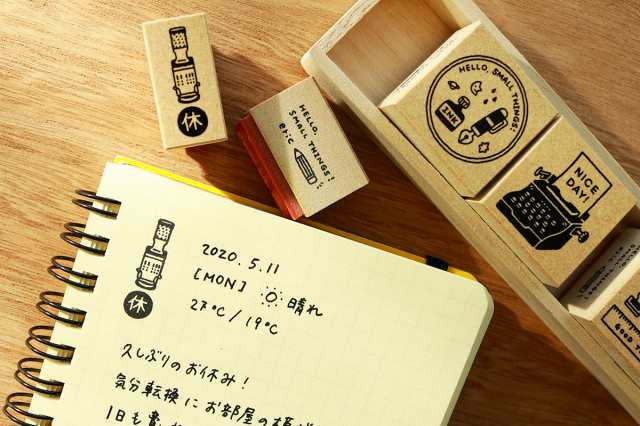 休
HELLO,
SMALL THINGS!
eric
HELLO, SMALL THINGS!
INK
NICE
DAY!
休
2020.5.11
[MON] 晴れ
27°C/19°C
久しぶりのお休み!
気分転換にお部屋の模
1日も